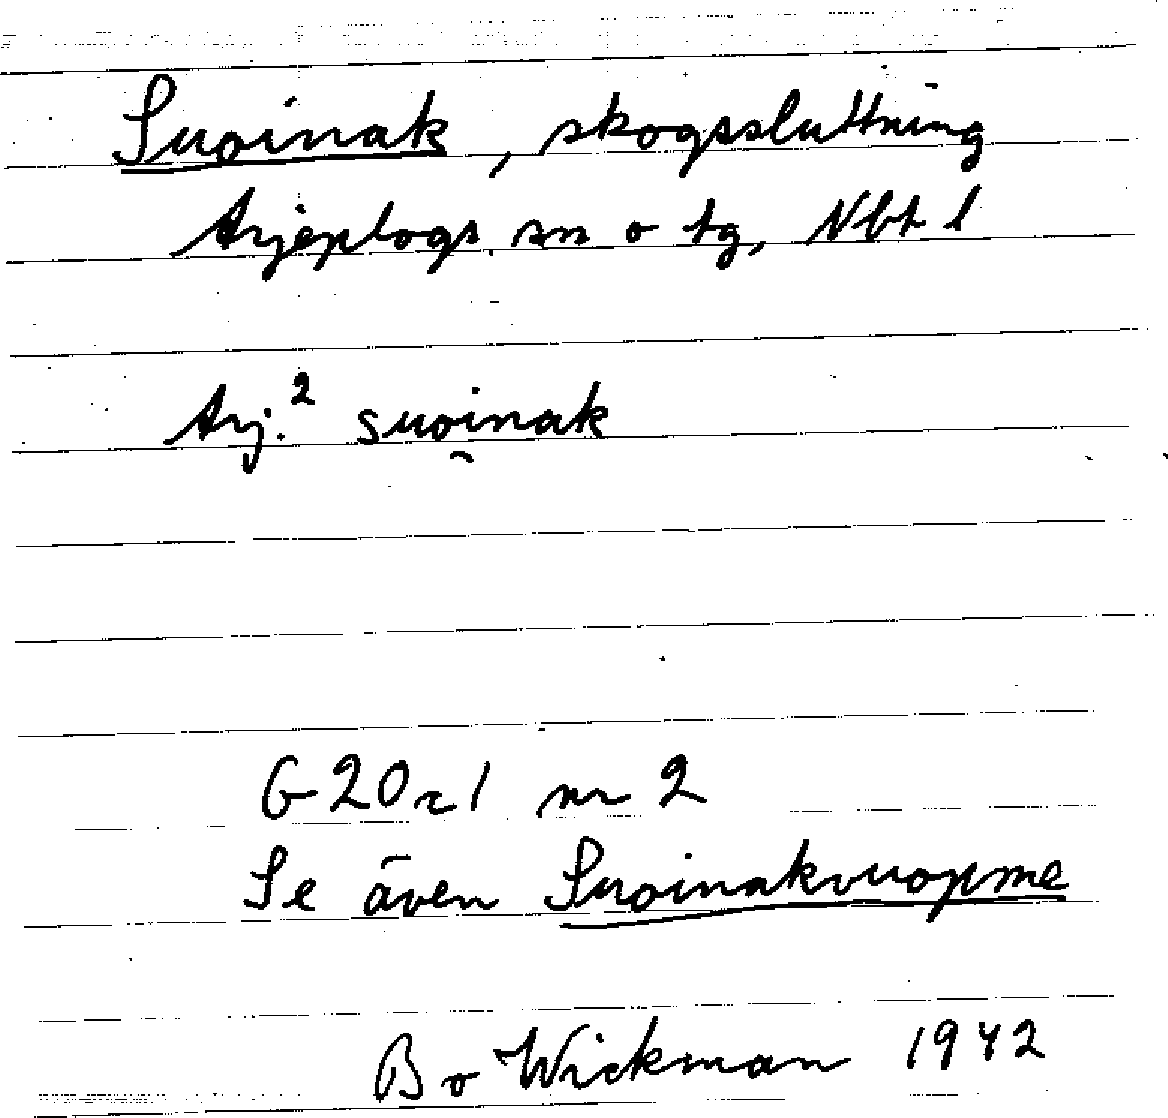 Suoinak, skogssluttning
Arjeplogs sn o tg, Nbt l
Arj.² suoi̯nak
G 20 r 1 nr 2
Se även Suoinakvuopme
Bo Wickman 1942